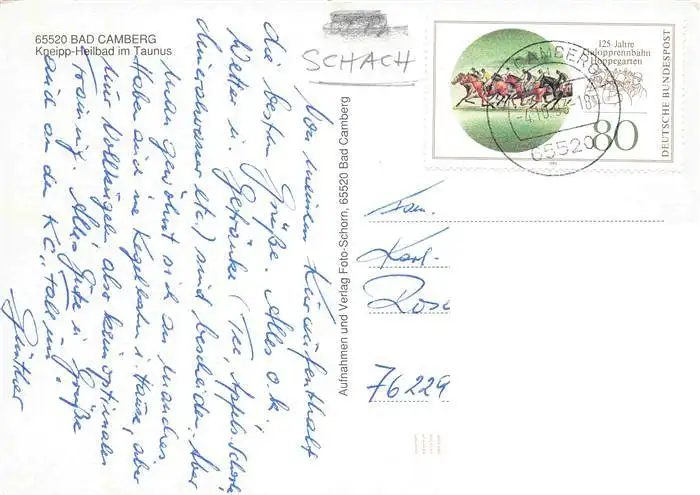 65520 BAD CAMBERG
Kneipp-Heilbad im Taunus
SCHACH
125 Jahre
Galopprennbahn
Hoppegarten
DEUTSCHE BUNDESPOST
80
CAMBERG
65520
Von meinem Kuraufenthalt
die besten Grüße. Alles o.k.
Wetter u. Getränke (Tee, Apfels.Schorle
Mineralwasser etc.) sind bescheiden. Aber
man gewöhnt sich an manches
Haben auch ne Kegelbahn i. Hause, aber
nur Vollkugeln also kein optimales
Training. Alles Gute u. Grüße
auch an den KC "Fall um".
Günther
Aufnahmen und Verlag Foto-Schorn, 65520 Bad Camberg
Fam.
Karl-
Rose
76229